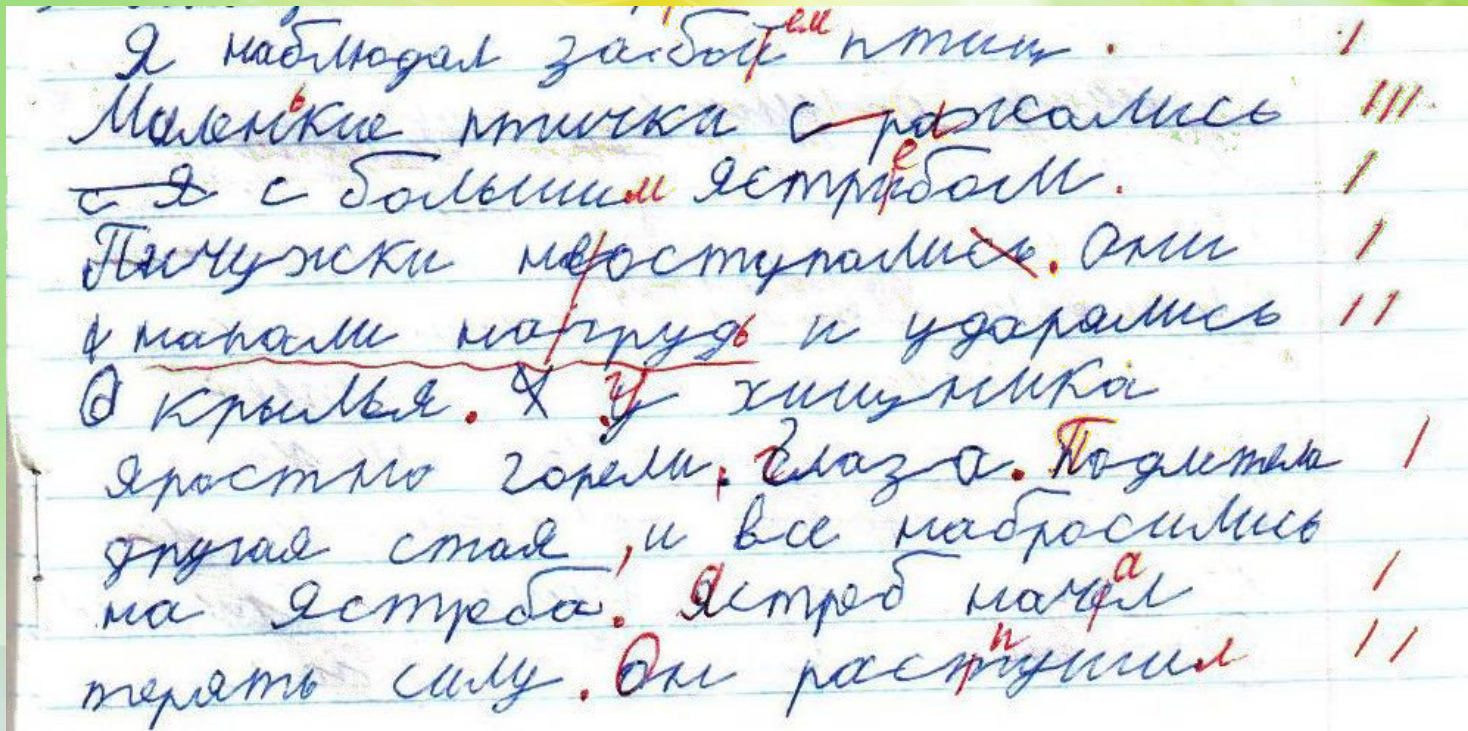 Я наблюдал забоем птиц.
Маленькие птички сражались
с я с большим ястребом.
Пичужки неоступались. Они
напали нагрудь и ударались
о крылья. У хищника
яростно горели глаза. Подлетела
другая стая, и все набросились
на ястреба. Ястреб начал
терять силу. Он распушил